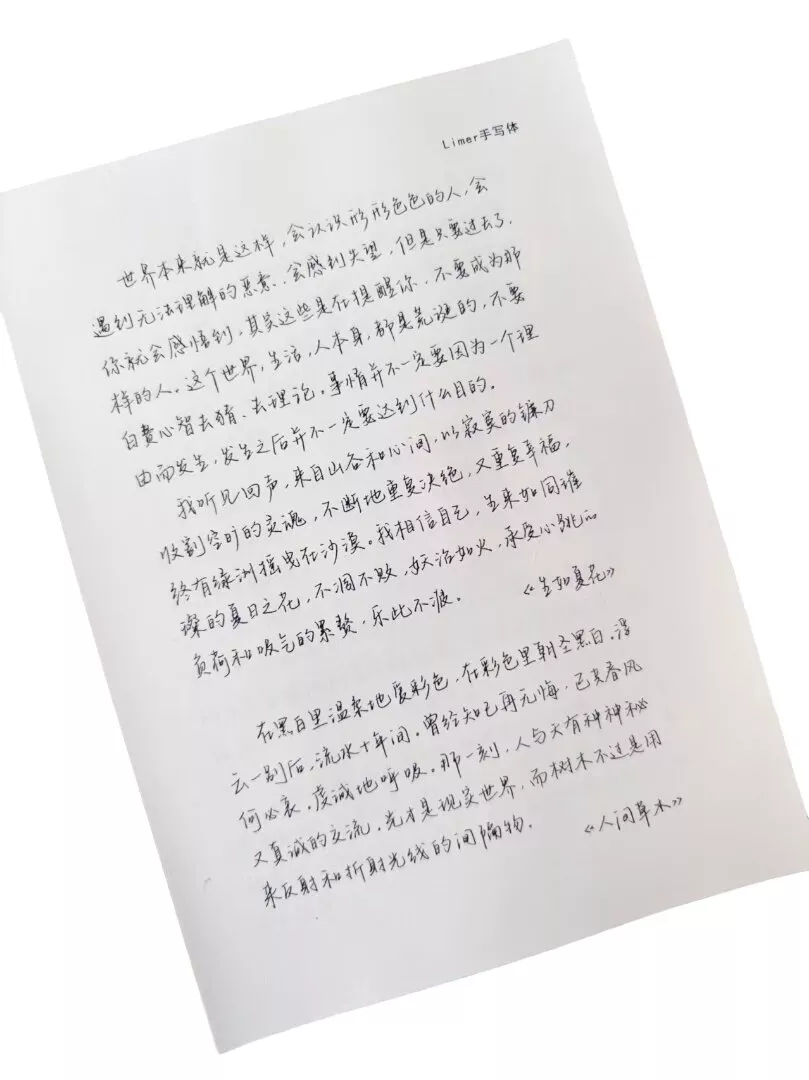 Limer手写体
世界本来就是这样，会认识形形色色的人，会
遇到无法理解的恶意、会感到失望，但是只要过去了，
你就会感悟到，其实这些是在提醒你，不要成为那
样的人。这个世界，生活，人本身，都是荒诞的，不要
白费心智去猜、去理论。事情并不一定要因为一个理
由而发生，发生之后并不一定要达到什么目的。
我听见回声，来自山谷和心间，以寂寞的镰刀
收割空旷的灵魂，不断地重复决绝，又重复幸福，
终有绿洲摇曳在沙漠。我相信自己，生来如同璀
璨的夏日之花，不凋不败，妖冶如火，承受心跳的
负荷和吸气的累赘，乐此不疲。 《生如夏花》
在黑白里温柔地爱彩色，在彩色里朝圣黑白。浮
云一别后，流水十年间。曾经知己再无悔，已共春风
何必哀。虔诚地呼吸。那一刻，人与天有种神神秘
又真诚的交流。光才是现实世界，而树木不过是用
来反射和折射光线的间隔物。 《人间草木》